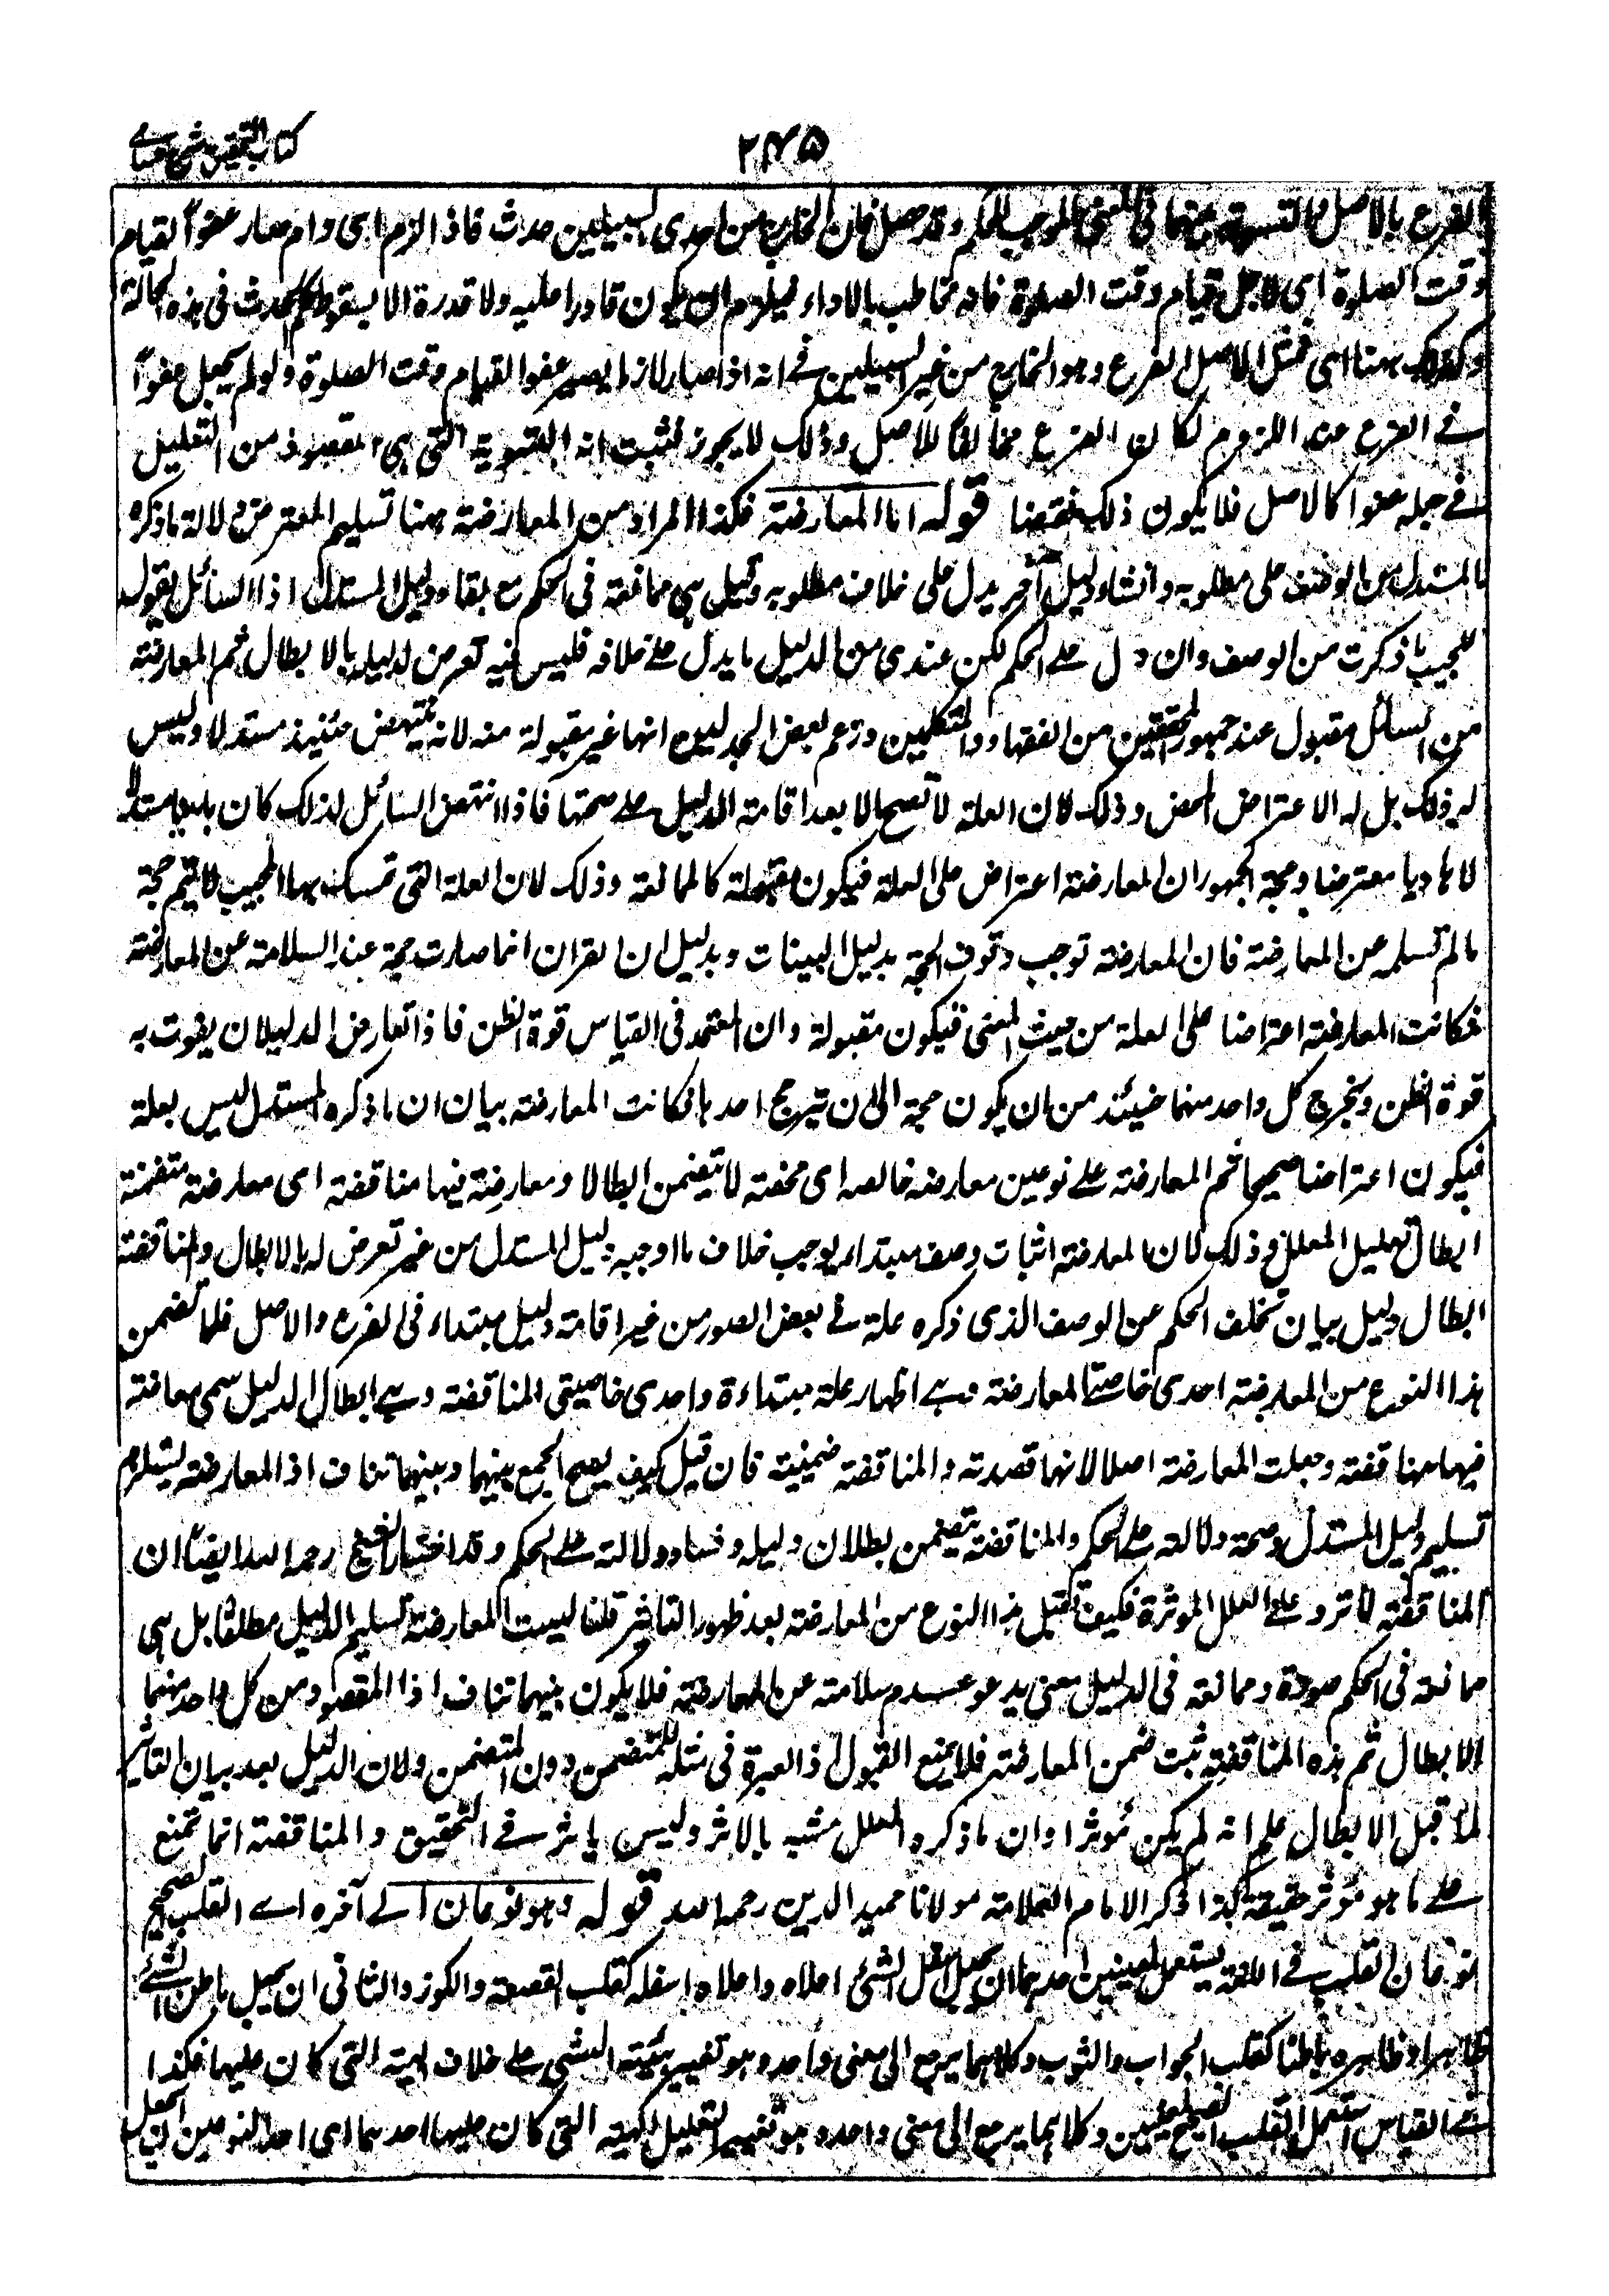 كتاب التحقيق شرح حسامى
٢٤٥
الفرع بالاصل التسوية بينهما فى المعنى الموجب للحكم وقد حصل فان الخارج من احدى السبيلين حدث فاذا لزم اى دام صار عفوا لقيام
وقت الصلوة اى لاجل قيام وقت الصلوة فانه مخاطب بالاداء فيلزم ان يكون قادرا عليه ولا قدرة الا بسقوط حكم الحدث فى هذه الحالة
وكذلك ههنا اى فمثل الاصل الفرع وهو الخارج من غير السبيلين فى انه اذا صار لازما يصير عفوا لقيام وقت الصلوة ولو لم يجعل عفوا
فى الفرع عند اللزوم لكان الفرع مخالفا للاصل وذلك لا يجوز فثبت انه التسوية التى هى المقصود من التعليل
فى جعله عفوا كالاصل فلا يكون ذلك نقضا قوله اما المعارضة فكذا المراد من المعارضة ههنا تسليم المعترض دلالة ما ذكره
المستدل من الوصف على مطلوبه وانشاء دليل آخر يدل على خلاف مطلوبه وقيل هى ممانعة فى الحكم مع بقاء دليل المستدل اذ السائل يقول
للمجيب ما ذكرت من الوصف وان دل على الحكم لكن عندى من الدليل ما يدل على خلافه فليس فيه تعرض لدليله بالابطال ثم المعارضة
من السائل مقبول عند جمهور المحققين من الفقهاء والمتكلمين وزعم بعض الجدليين انها غير مقبولة منه لانه ينتهض حينئذ مستدلا وليس
له ذلك بل له الاعتراض المحض وذلك لان العلة لا تصح الا بعد اقامة الدليل على صحتها فاذا انتهض السائل لذلك كان بانيا مستدلا
لا هاديا معترضا وحجة الجمهور ان المعارضة اعتراض على العلة فيكون مقبولة كالممانعة وذلك لان العلة التى تمسك بها المجيب لا تتم حجة
ما لم تسلم عن المعارضة فان المعارضة توجب وقوف الحجة بدليل البينات وبدليل ان القران انما صارت حجة عند السلامة عن المعارضة
فكانت المعارضة اعتراضا على العلة من حيث المعنى فيكون مقبولة وان المعتمد فى القياس قوة الظن فاذا تعارض الدليلان يفوت به
قوة الظن ويخرج كل واحد منهما حينئذ من ان يكون حجة الى ان يترجح احدهما فكانت المعارضة بيان ان ما ذكره المستدل ليس بعلة
فيكون اعتراضا صحيحا ثم المعارضة على نوعين معارضة خالصة اى محضة لا تتضمن ابطالا ومعارضة فيها مناقضة اى معارضة متضمنة
ابطال تعليل المعلل وذلك لان المعارضة اثبات وصف مبتداء يوجب خلاف ما اوجبه دليل المستدل من غير تعرض له بالابطال والمناقضة
ابطال دليل ببيان تخلف الحكم عن الوصف الذى ذكره علة فى بعض الصور من غير اقامة دليل مبتداء فى الفرع والاصل فلما تضمن
هذا النوع من المعارضة احدى خاصتى المعارضة وهى اظهار علة مبتداءة واحدى خاصيتى المناقضة وهى ابطال الدليل سمى معارضة
فيها مناقضة وجعلت المعارضة اصلا لانها قصدية والمناقضة ضمنية فان قيل كيف يصح الجمع بينهما وبينهما تناف اذ المعارضة يستلزم
تسليم دليل المستدل وصحة دلالته على الحكم والمناقضة يتضمن بطلان دليله وفساد دلالته على الحكم وقد اختار الشيخ رحمه الله ايضا ان
المناقضة لا ترد على العلل الموثرة فكيف تقبل هذا النوع من المعارضة بعد ظهور التاثير قلنا ليست المعارضة تسليم الدليل مطلقا بل هى
ممانعة فى الحكم صورة وممانعة فى الدليل معنى يدعو عدم سلامته عن المعارضة فلا يكون بينهما تناف اذ المقصود من كل واحد منهما
الابطال ثم هذه المناقضة ثبت ضمن المعارضة فلا يمنع القبول اذ العبرة فى مثله للمتضمن دون المتضمن ولان الدليل بعد بيان التاثير
لما قبل الابطال علم انه لم يكن مؤثرا وان ما ذكره المعلل مشبه بالاثر وليس باثر فى التحقيق والمناقضة انما تمنع
على ما هو مؤثر حقيقة كذا ذكر الامام العلامة مولانا حميد الدين رحمه الله قوله وهو نوعان الى آخره اى القلب الصحيح
نوعان القلب فى اللغة يستعمل لمعنيين احدهما ان يجعل اسفل الشئ اعلاه واعلاه اسفله كقلب القصعة والكوز والثانى ان يجعل باطن الشئ
ظاهرا وظاهره باطنا كقلب الجراب والثوب وكلاهما يرجع الى معنى واحد وهو تغيير هيئة الشئ على خلاف الهيئة التى كان عليها فكذا
فى القياس استعمل القلب الصحيح لمعنيين وكلاهما يرجع الى معنى واحد وهو تغيير التعليل الهيئة التى كان عليها احدهما اى احد النوعين ان يجعل